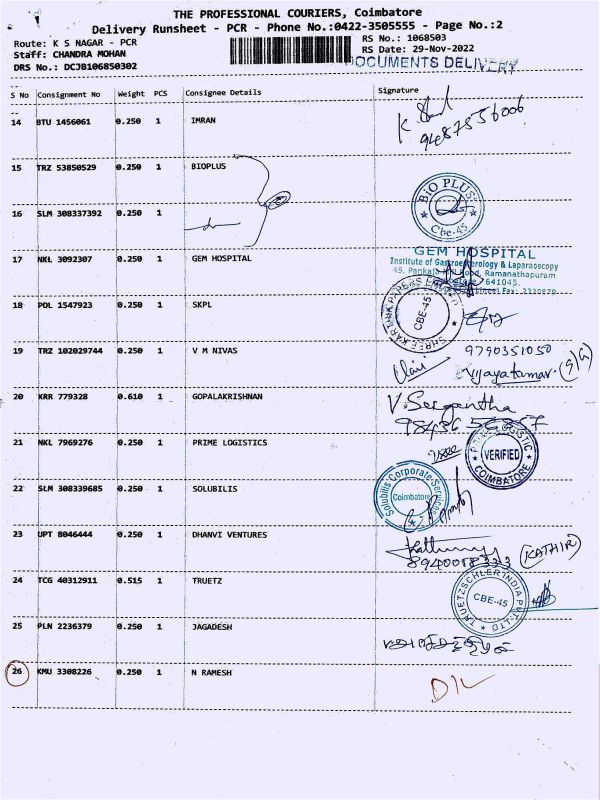 THE PROFESSIONAL COURIERS, Coimbatore
Delivery Runsheet - PCR - Phone No.:0422-3505555 - Page No.:2
Route: K S NAGAR - PCR
RS No.: 1068503
Staff: CHANDRA MOHAN
RS Date: 29-Nov-2022
DRS No.: DCJB106850302
DOCUMENTS DELIVERY
S No Consignment No Weight PCS Consignee Details Signature
14 BTU 1456061 0.250 1 IMRAN
9487556006
15 TRZ 53850529 0.250 1 BIOPLUS
BIO PLUS
Cbe-45
16 SLM 308337392 0.250 1
17 NKL 3092307 0.250 1 GEM HOSPITAL
GEM HOSPITAL
Institute of Gastroenterology & Laparoscopy
45, Pankaja Mill Road, Ramanathapuram
641045.
18 POL 1547923 0.250 1 SKPL
SHREE KARTHIK PAPERS LIMITED
CBE-45
19 TRZ 102029744 0.250 1 V M NIVAS
9790351050
Vijayakumar (S/G)
20 KRR 779328 0.610 1 GOPALAKRISHNAN
21 NKL 7969276 0.250 1 PRIME LOGISTICS
PRIME LOGISTIC
VERIFIED
COIMBATORE
22 SLM 308339685 0.250 1 SOLUBILIS
Solubilis Corporate Services
Coimbatore
23 UPT 8046444 0.250 1 DHANVI VENTURES
8940008333 (KATHIR)
24 TCG 40312911 0.515 1 TRUETZ
TRUETZSCHLER INDIA PVT. LTD
CBE-45
25 PLN 2236379 0.250 1 JAGADESH
26 KMU 3308226 0.250 1 N RAMESH
D/L